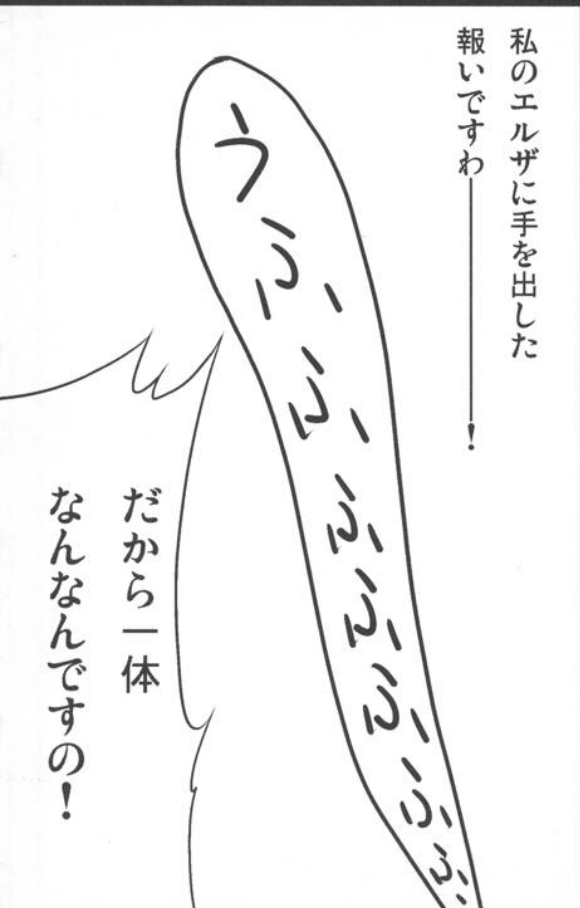 私のエルザに手を出した
報いですわ――――!
うふふふふふふふ
だから一体
なんなんですの!